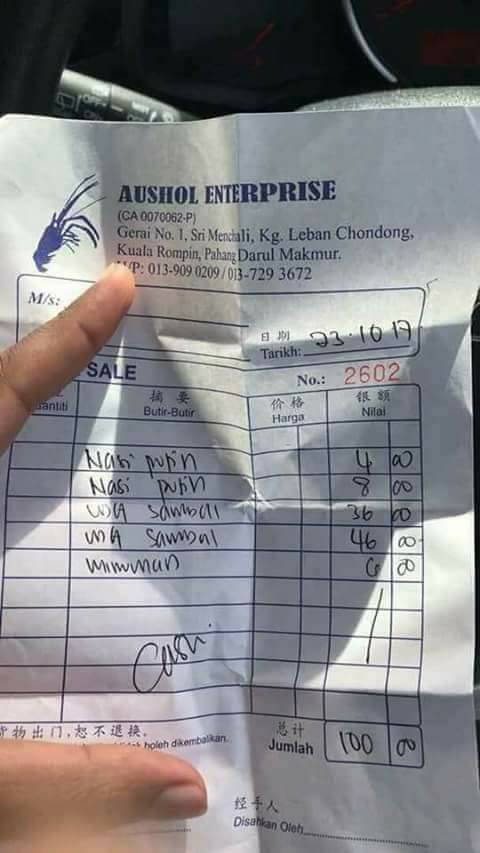 AUSHOL ENTERPRISE
(CA 0070062-P)
Gerai No. 1, Sri Menchali, Kg. Leban Chondong,
Kuala Rompin, Pahang Darul Makmur.
/P: 013-909 0209 / 013-729 3672
M/s:
日期
Tarikh: 23.10.17
SALE
No.: 2602
摘要 价格 银额
uantiti Butir-Butir Harga Nilai
Nasi putih 4 00
Nasi putih 8 00
sambal 36 00
sambal 46 00
minuman 6 00
Cash
货物出门,恕不退换.
boleh dikembalikan.
总计
Jumlah 100 00
经手人
Disahkan Oleh